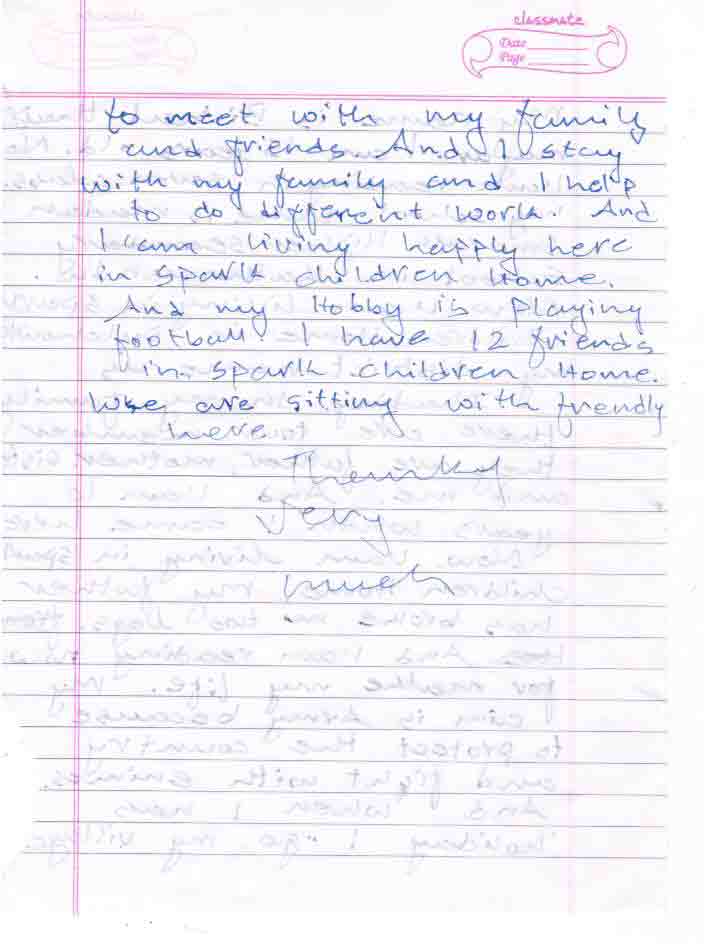 classmate
Date
Page
to meet with my family
and friends. And I stay
with my family and I help
to do different work. And
I am living happly here
in spark children Home.
And my Hobby is playing
football. I have 12 friends
in spark children Home.
are sitting with frendly
here
Thank
Very
much